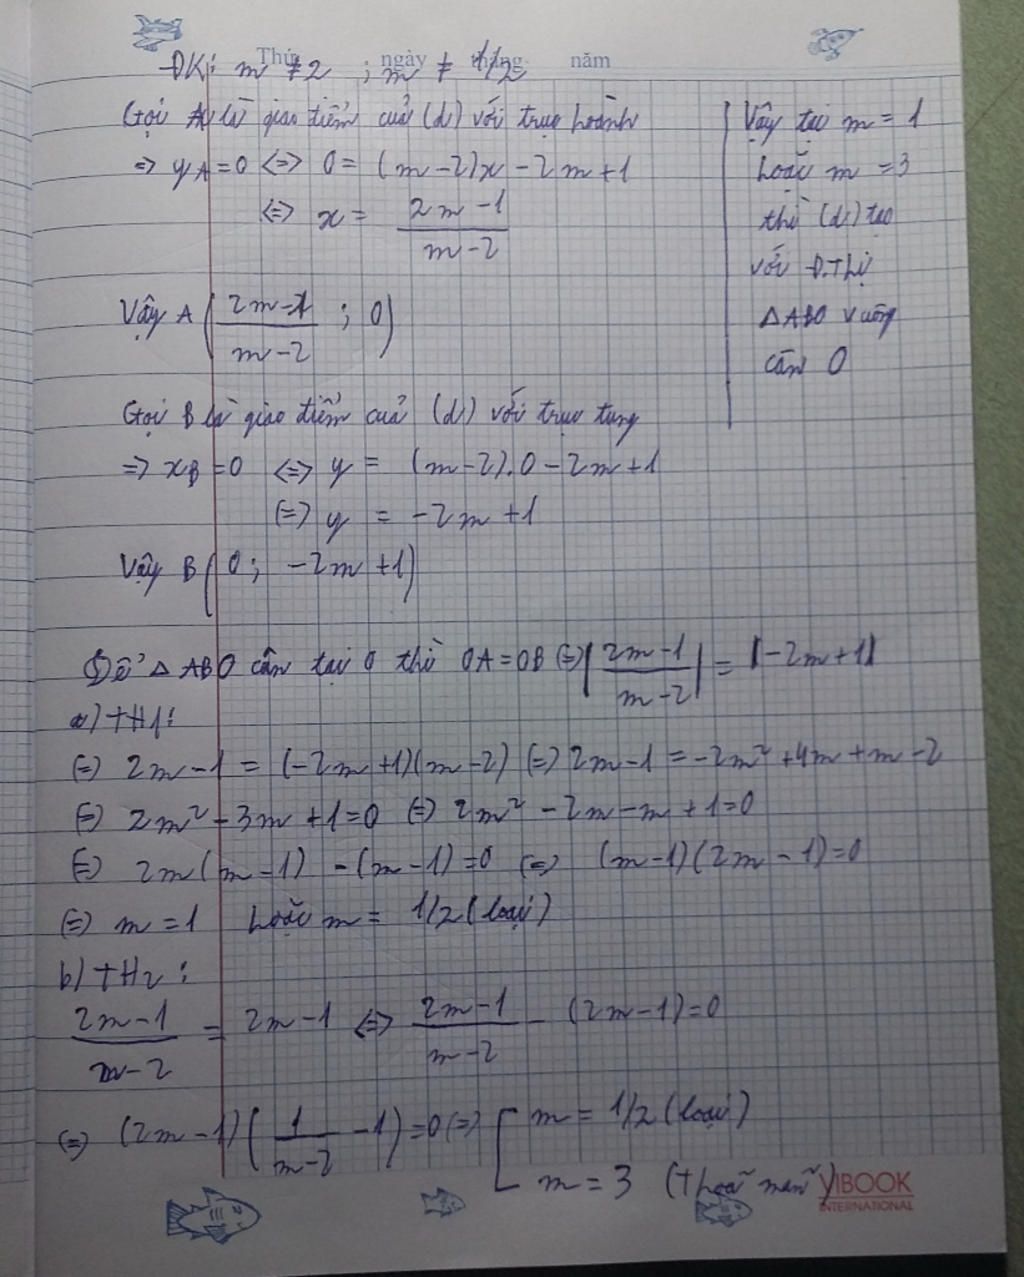 Thứ ngày tháng năm
ĐK: m ≠ 2 ; m ≠ 1/2
Gọi A là giao điểm của (d) với trục hoành
=> yA = 0 <=> 0 = (m-2)x - 2m + 1
<=> x = (2m-1)/(m-2)
Vậy A ((2m-1)/(m-2) ; 0)
Gọi B là giao điểm của (d) với trục tung
=> xB = 0 <=> y = (m-2).0 - 2m + 1
(=) y = -2m + 1
Vậy B (0 ; -2m + 1)
Để Δ ABO cân tại O thì OA = OB (=) |(2m-1)/(m-2)| = |-2m+1|
a) TH1:
(=) 2m - 1 = (-2m+1)(m-2) (=) 2m - 1 = -2m² + 4m + m - 2
(=) 2m² - 3m + 1 = 0 (=) 2m² - 2m - m + 1 = 0
(=) 2m(m-1) - (m-1) = 0 (=) (m-1)(2m-1) = 0
(=) m = 1 hoặc m = 1/2 (loại)
b) TH2:
(2m-1)/(m-2) = 2m-1 <=> (2m-1)/(m-2) - (2m-1) = 0
(=) (2m-1)(1/(m-2) - 1) = 0 (=) [ m = 1/2 (loại)
m = 3 (thoã mãn)
Vậy tại m = 1
hoặc m = 3
thì (d) tạo
với Đ.Thị
Δ ABO vuông
cân O
VIBOOK
INTERNATIONAL